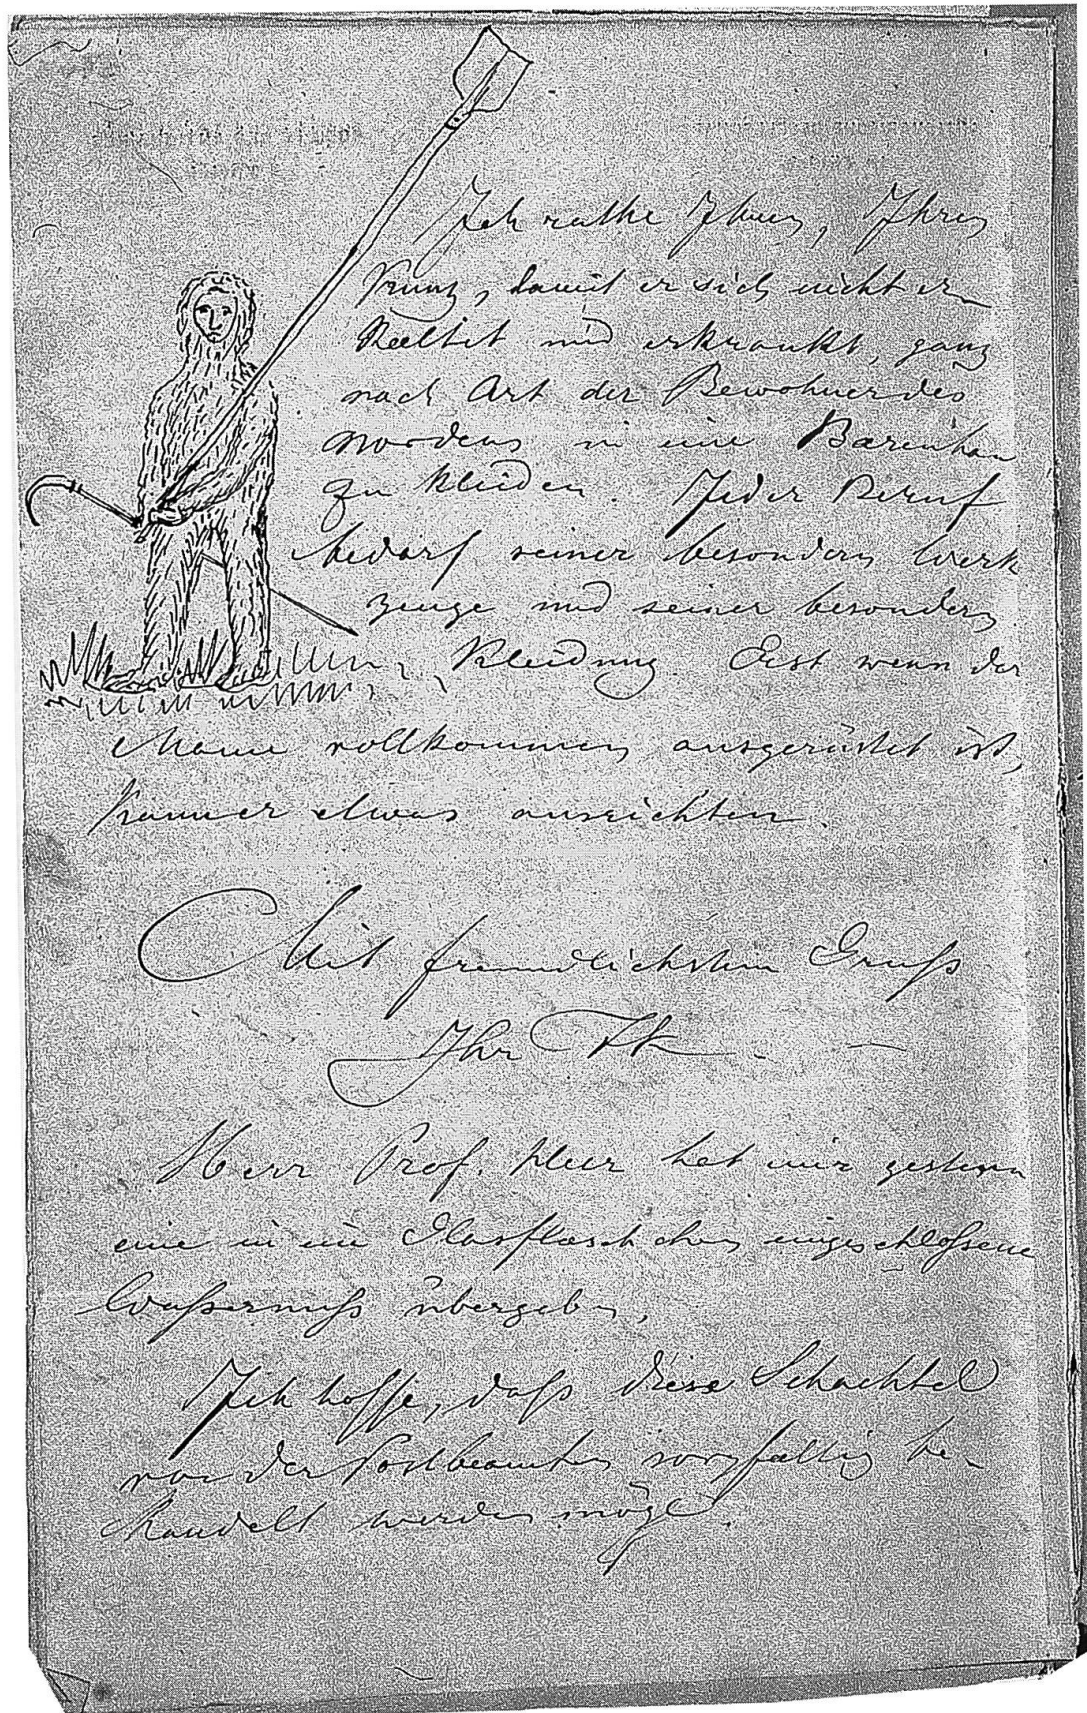 Ich rathe Ihnen, Ihren
Kunz, damit er sich nicht er-
kaeltet und erkrankt, ganz
nach Art der Bewohner des
Nordens in eine Bärenhau
zu kleiden. Jeder Beruf
bedarf seiner besondern Werk
zeuge und seiner besondern
Kleidung. Erst wenn der
Mann vollkommen ausgerüstet ist,
kann er etwas ausrichten.
Mit freundlichstem Gruß
Ihr
Herr Prof. Heer hat mir gestern
eine in ein Glasflaeschchen eingeschloßene
Waßernuß übergeben,
Ich hoffe, daß diese Schachtel
von den Postbeamten sorgfaeltig be-
handelt werden möge.